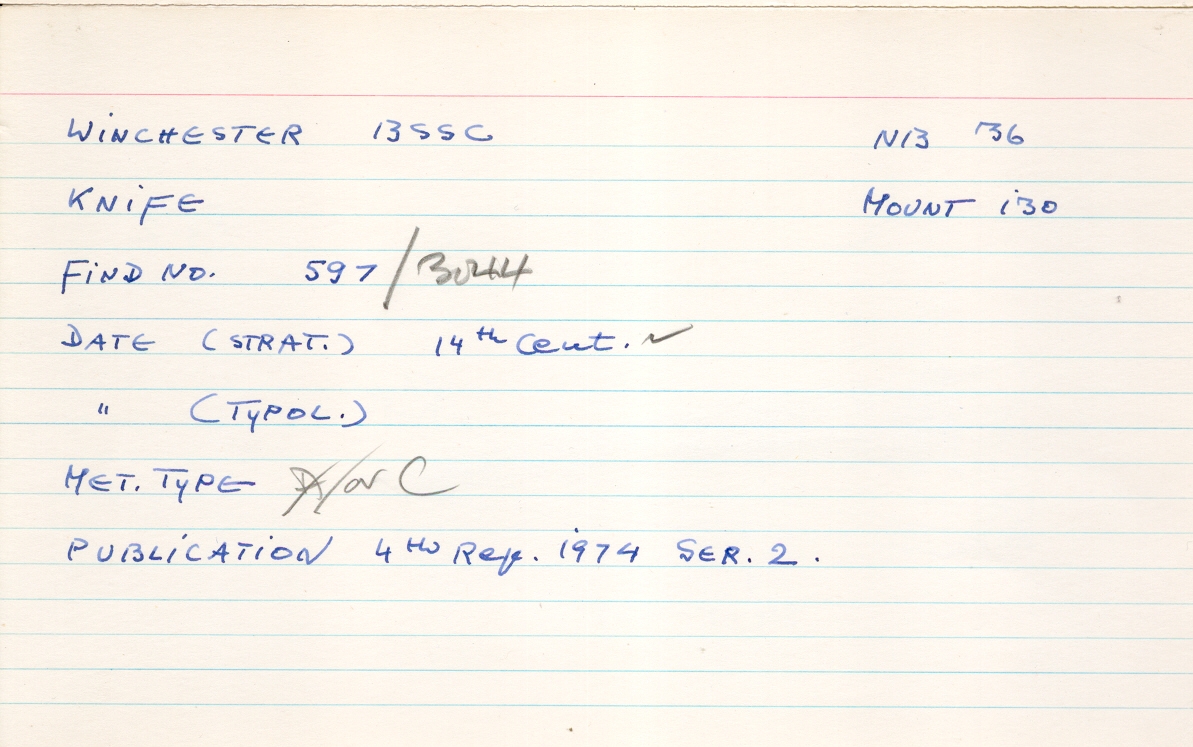 WINCHESTER 13SSC N13 '36
KNIFE MOUNT 130
FIND NO. 597/3044
DATE (STRAT.) 14th Cent. ✓
" (TYPOL.)
MET. TYPE /or C
PUBLICATION 4th Rep. 1974 SER. 2.